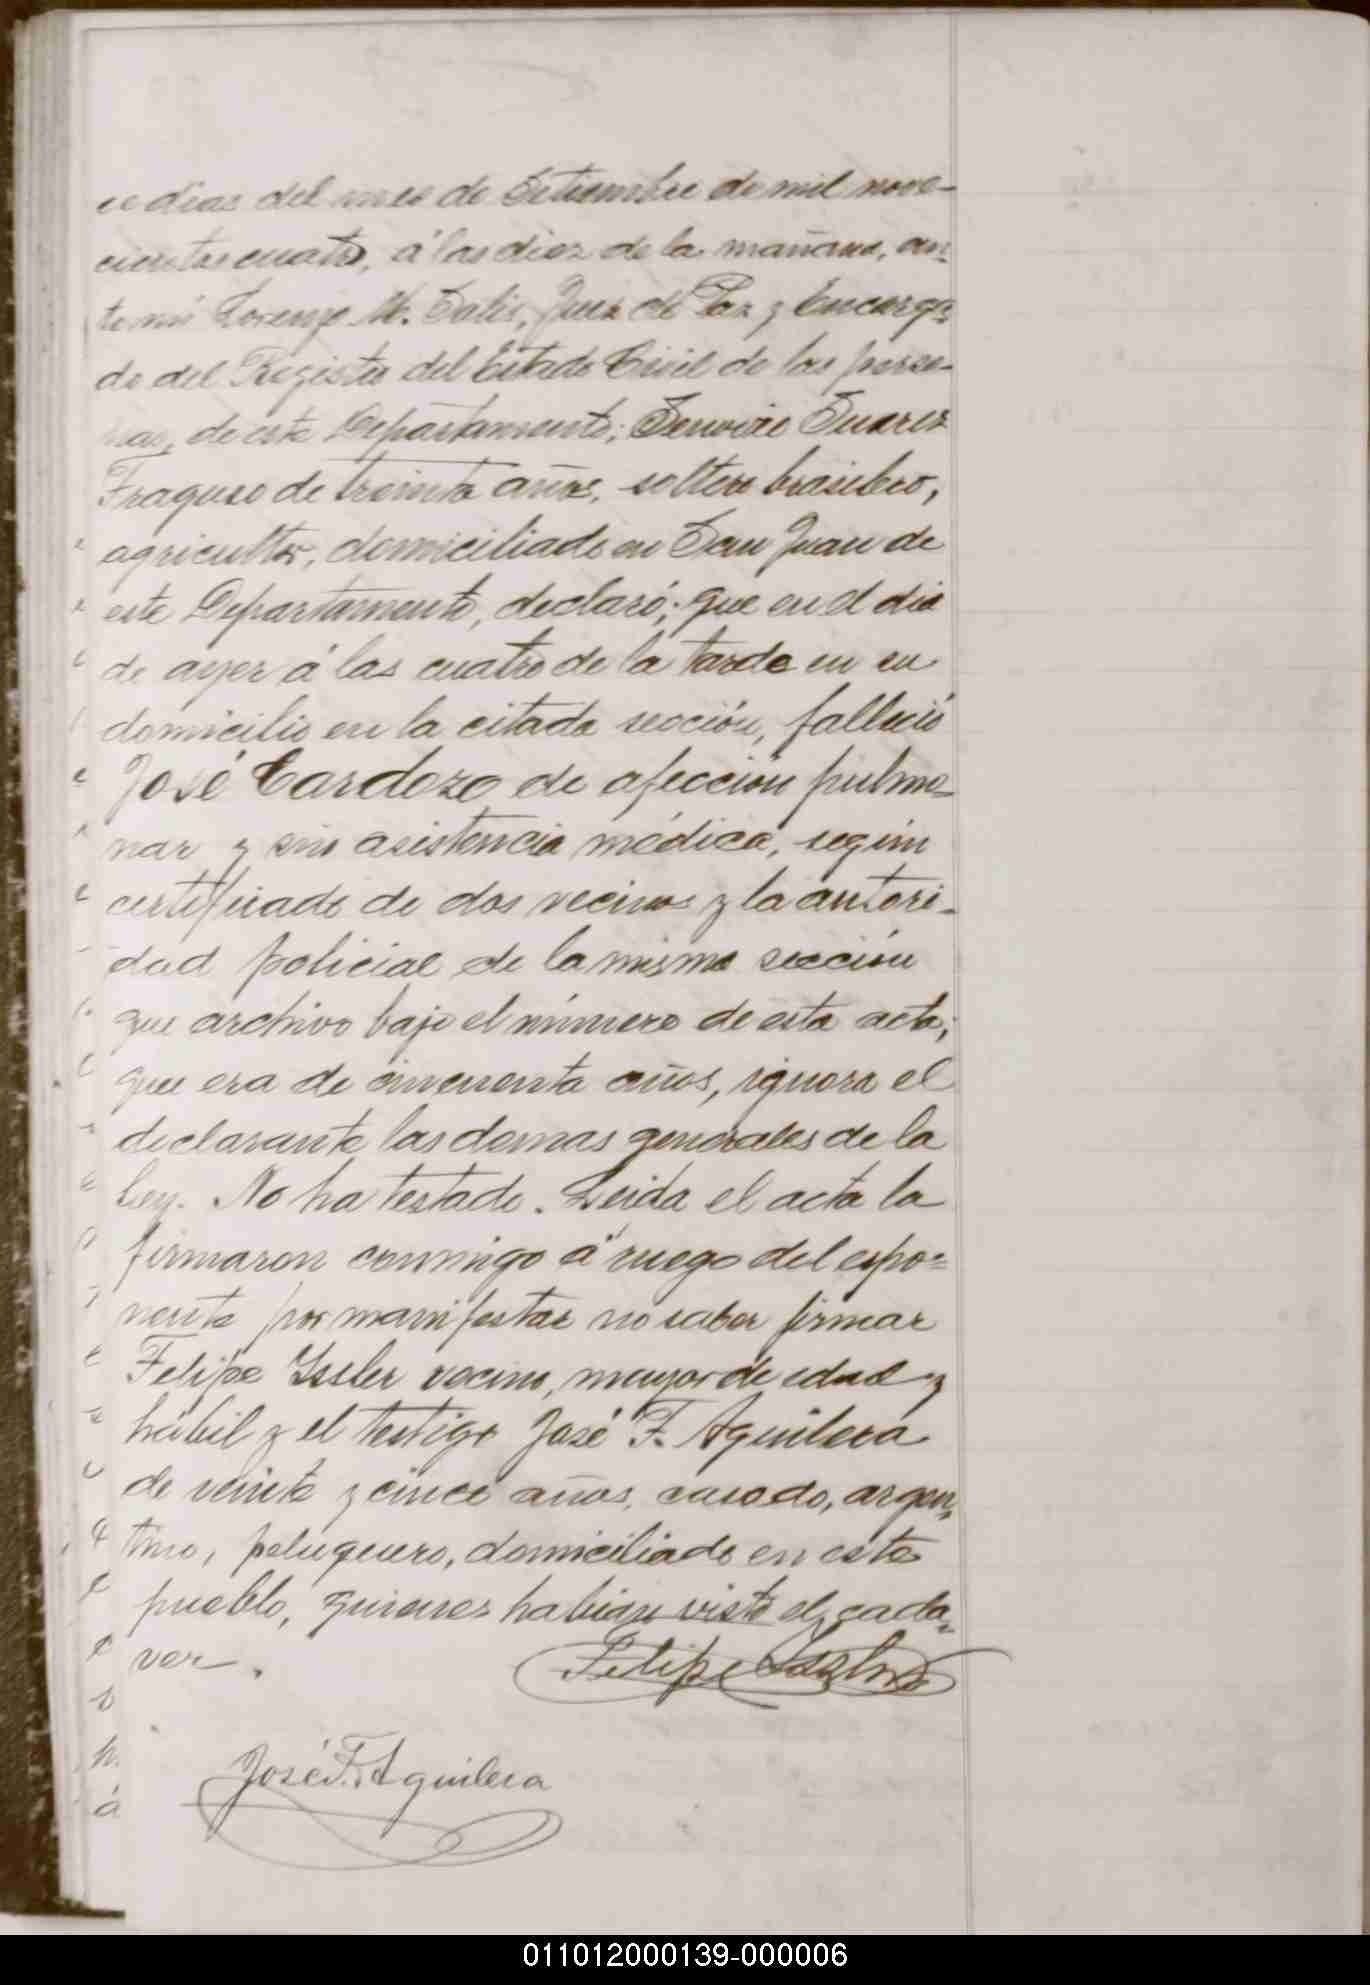 ce dias del mes de Setiembre de mil nove-
cientos cuatro, á las diez de la mañana, an-
te mi Lorenzo M. Solis, Juez de Paz y Encarga-
do del Registro del Estado Civil de las perso-
nas, de este Departamento; Suarez
Fraguso de treinta años, soltero brasilero,
agricultor, domiciliado en San Juan de
este Departamento, declaró; que en el dia
de ayer á las cuatro de la tarde en su
domicilio en la citada sección, falleció
José Cardozo de afección pulmo-
nar y sin asistencia médica, según
certificado de dos vecinos y la autori-
dad policial de la misma sección
que archivo bajo el número de esta acta;
que era de cincuenta años, ignora el
declarante las demas generales de la
ley. No ha testado. Leida el acta la
firmaron conmigo á ruego del expo-
nente por manifestar no saber firmar
Felipe Issler vecino, mayor de edad y
hábil y el testigo José F. Aguilera
de veinte y cinco años, casado, argen-
tino, peluquero, domiciliado en este
pueblo, quienes habian visto el cada-
ver.
Felipe Issler
José F. Aguilera
011012000139-000006